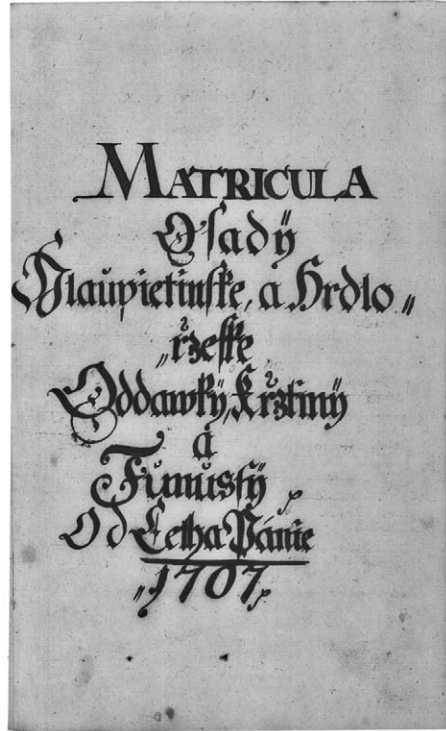 MATRICULA
Osadÿ
Slaupietinske, a Hrdlo„
„rzeske
Oddawkÿ, Krztinÿ
a
Funusÿ
Od Letha Pánie
1707